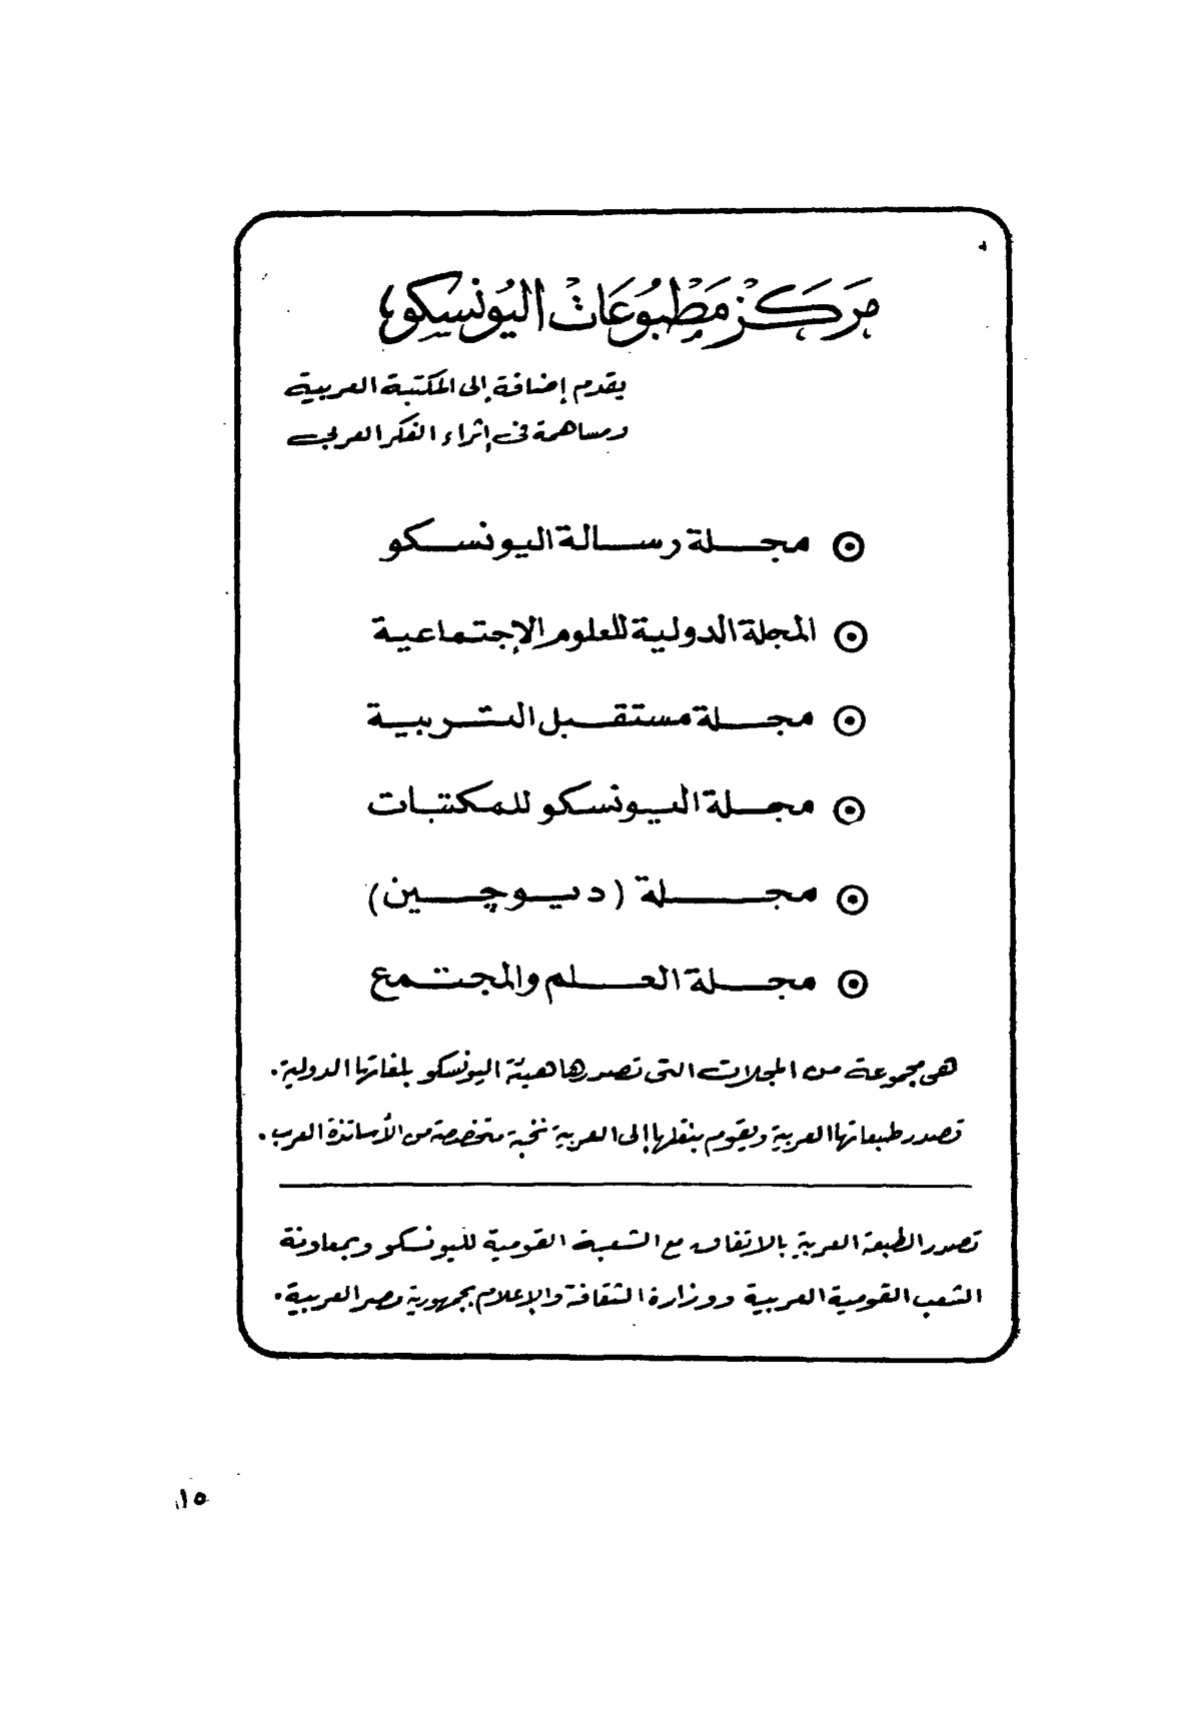 مَركَز مَطبُوعَات اليُونسكو
يقدم إضافة إلى المكتبة العربية
ومساهمة فى إثراء الفكر العربى
مجلة رسالة اليونسكو
المجلة الدولية للعلوم الإجتماعية
مجلة مستقبل التربية
مجلة اليونسكو للمكتبات
مجلة (ديوچين)
مجلة العلم والمجتمع
هى مجموعة من المجلات التى تصدرها هيئة اليونسكو بلغاتها الدولية.
تصدر طبعاتها العربية ويقوم بنقلها إلى العربية نخبة متخصصة من الأساتذة العرب.
تصدر الطبعة العربية بالاتفاق مع الشعبة القومية لليونسكو وبمعاونة
الشعب القومية العربية ووزارة الثقافة والإعلام بجمهورية مصر العربية.
١٥